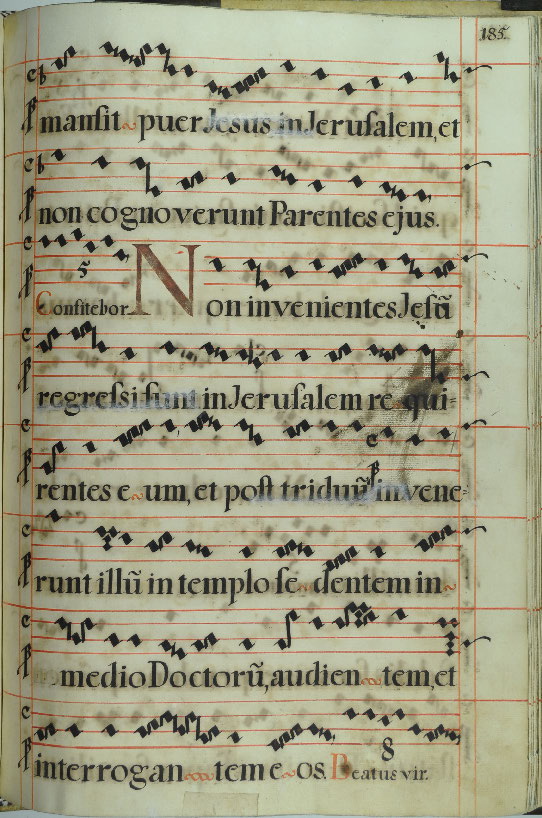 185.
manſit puer Jesus in Jeruſalem, et
non cognoverunt Parentes ejus.
5
Confitebor Non invenientes Jeſũ
regreſsi ſunt in Jeruſalem re qui=
rentes e um, et poſt triduũ invene=
runt illũ in templo ſe dentem in
medio Doctorũ, audien tem, et
8
interrogan tem e os. Beatus vir.